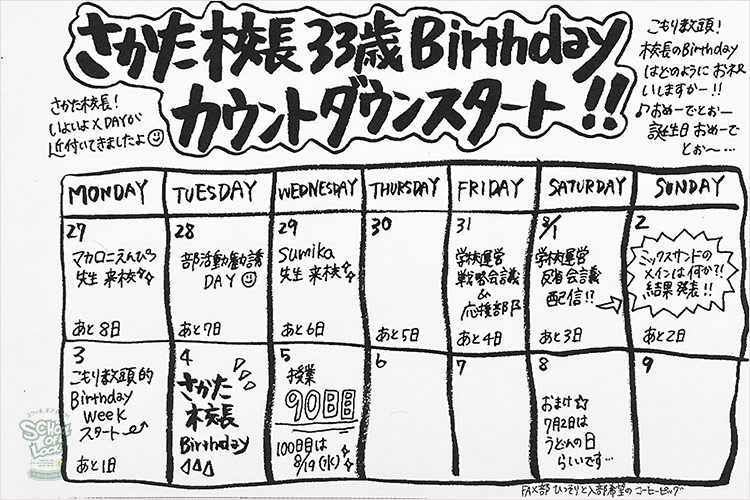 さかた校長33歳Birthday
カウントダウンスタート!!
さかた校長!
いよいよX DAYが
近付いてきましたよ
こもり教頭!
校長のBirthday
はどのように お祝
いしますかー!!
♪おめーでとぉー
誕生日 おめーで
とぉ〜…
MONDAY TUESDAY WEDNESDAY THURSDAY FRIDAY SATURDAY SUNDAY
27
マカロニえんぴつ
先生 来校
あと8日
28
部活動勧誘
DAY
あと7日
29
sumika
先生 来校
あと6日
30
あと5日
31
学校運営
戦略会議
&
応援部
あと4日
8/1
学校運営
反省会議
配信!!
あと3日
2
ミックスサンドの
メインは何か?!
結果発表!!
あと2日
3
こもり教頭的
Birthday
Week
スタート
あと1日
4
さかた
校長
Birthday
5
授業
90日目
100日目は
8/19(水)
6
7
8
おまけ☆
7月2日は
うどんの日
らしいです…
9
SCHOOL
OF
LOCK!
FAX部 ひっそりと入部希望の コーヒーピッグ